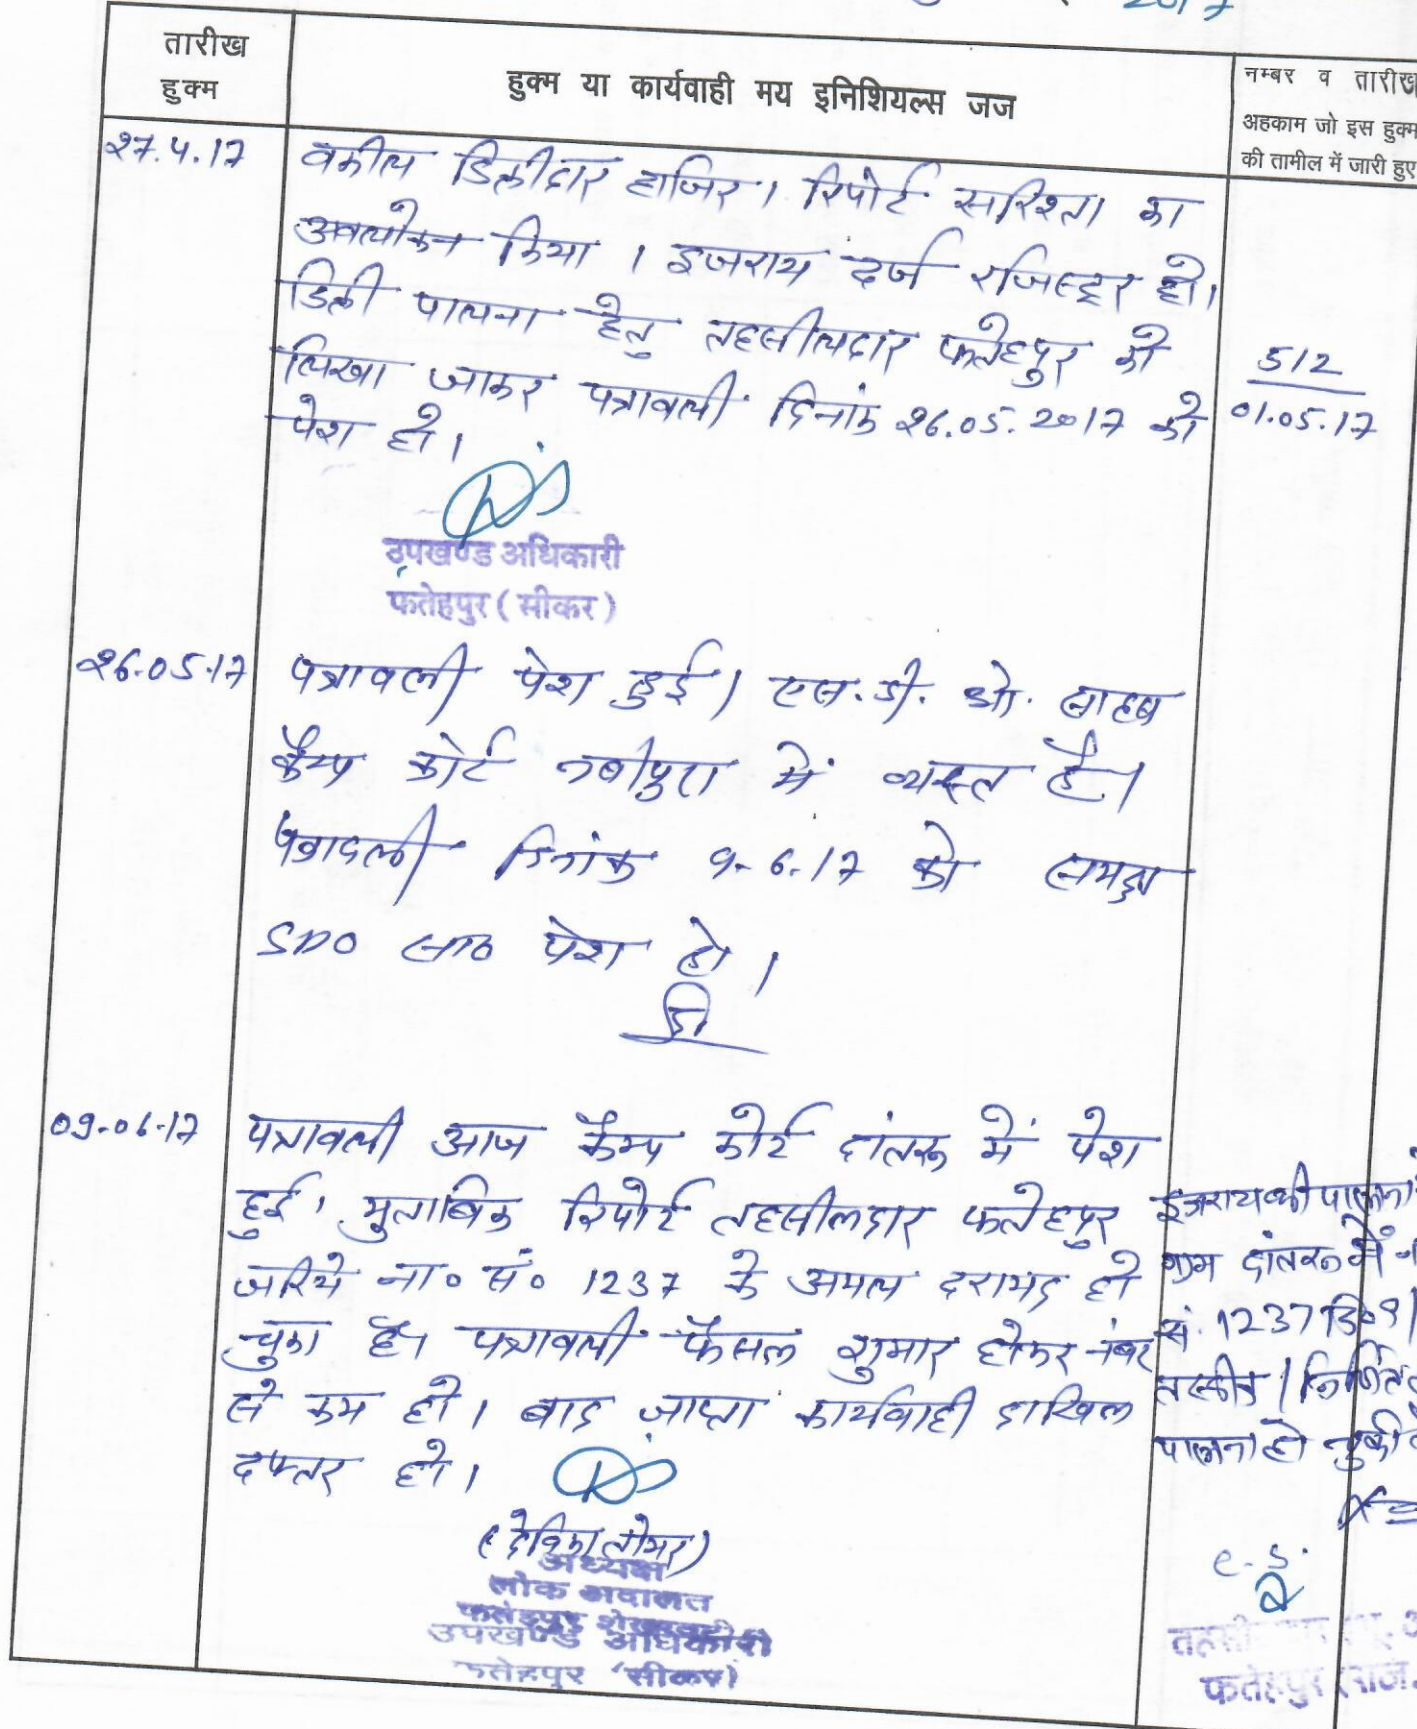 2017
तारीख
हुक्म
हुक्म या कार्यवाही मय इनिशियल्स जज
नम्बर व तारीख
अहकाम जो इस हुक्म
की तामील में जारी हुए
27.4.17
वकील डिक्रीदार हाजिर। रिपोर्ट सरिश्ता का
अवलोकन किया। इजराय दर्ज रजिस्टर हो।
डिक्री पालना हेतु तहसीलदार फतेहपुर को
लिखा जाकर पत्रावली दिनांक 26.05.2017 को
पेश हो।
512
01.05.17
उपखण्ड अधिकारी
फतेहपुर (सीकर)
26.05.17
पत्रावली पेश हुई। एस.डी.ओ. साहब
कैम्प कोर्ट में व्यस्त है।
पत्रावली दिनांक 9-6-17 को समक्ष
SDO सा० पेश हो।
09-06-17
पत्रावली आज कैम्प कोर्ट दांतरू में पेश
हुई। मुताबिक रिपोर्ट तहसीलदार फतेहपुर
जरिये ना० सं० 1237 के अमल दरामद हो
चुका है। पत्रावली फैसल शुमार होकर नंबर
से कम हो। बाद जाप्ता कार्यवाही दाखिल
दफ्तर हो।
(देविका तोमर)
अध्यक्ष
लोक अदालत
फतेहपुर शेखावाटी
उपखण्ड अधिकारी
फतेहपुर (सीकर)
इजराय की पालना
ग्राम दांतरू में
सं. 1237
पालना हो चुकी
फतेहपुर (राज.